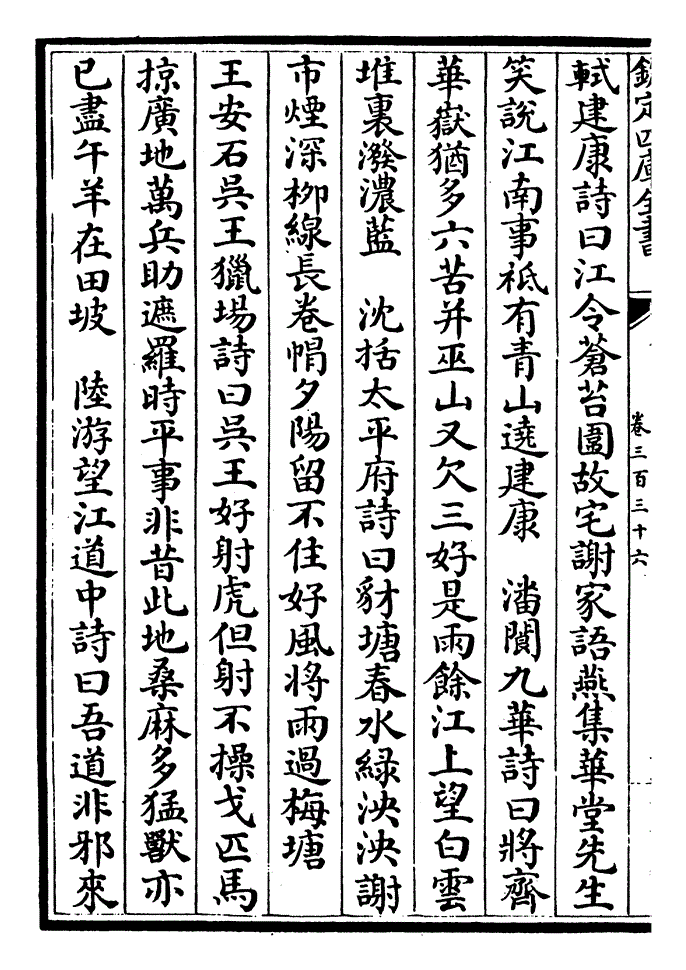 欽定四庫全書
卷三百三十六
軾建康詩曰江令蒼苔圍故宅謝家語燕集華堂先生
笑說江南事祗有青山遶建康　潘閬九華詩曰將齊
華嶽猶多六若并巫山又欠三好是雨餘江上望白雲
堆裏潑濃藍　沈括太平府詩曰豺塘春水綠泱泱謝
市煙深柳線長卷幔夕陽留不住好風將雨過梅塘
王安石吳王獵場詩曰吳王好射虎但射不操戈匹馬
掠廣地萬兵助遮羅時平事非昔此地桑麻多猛獸亦
已盡午羊在田坡　陸游望江道中詩曰吾道非邪來